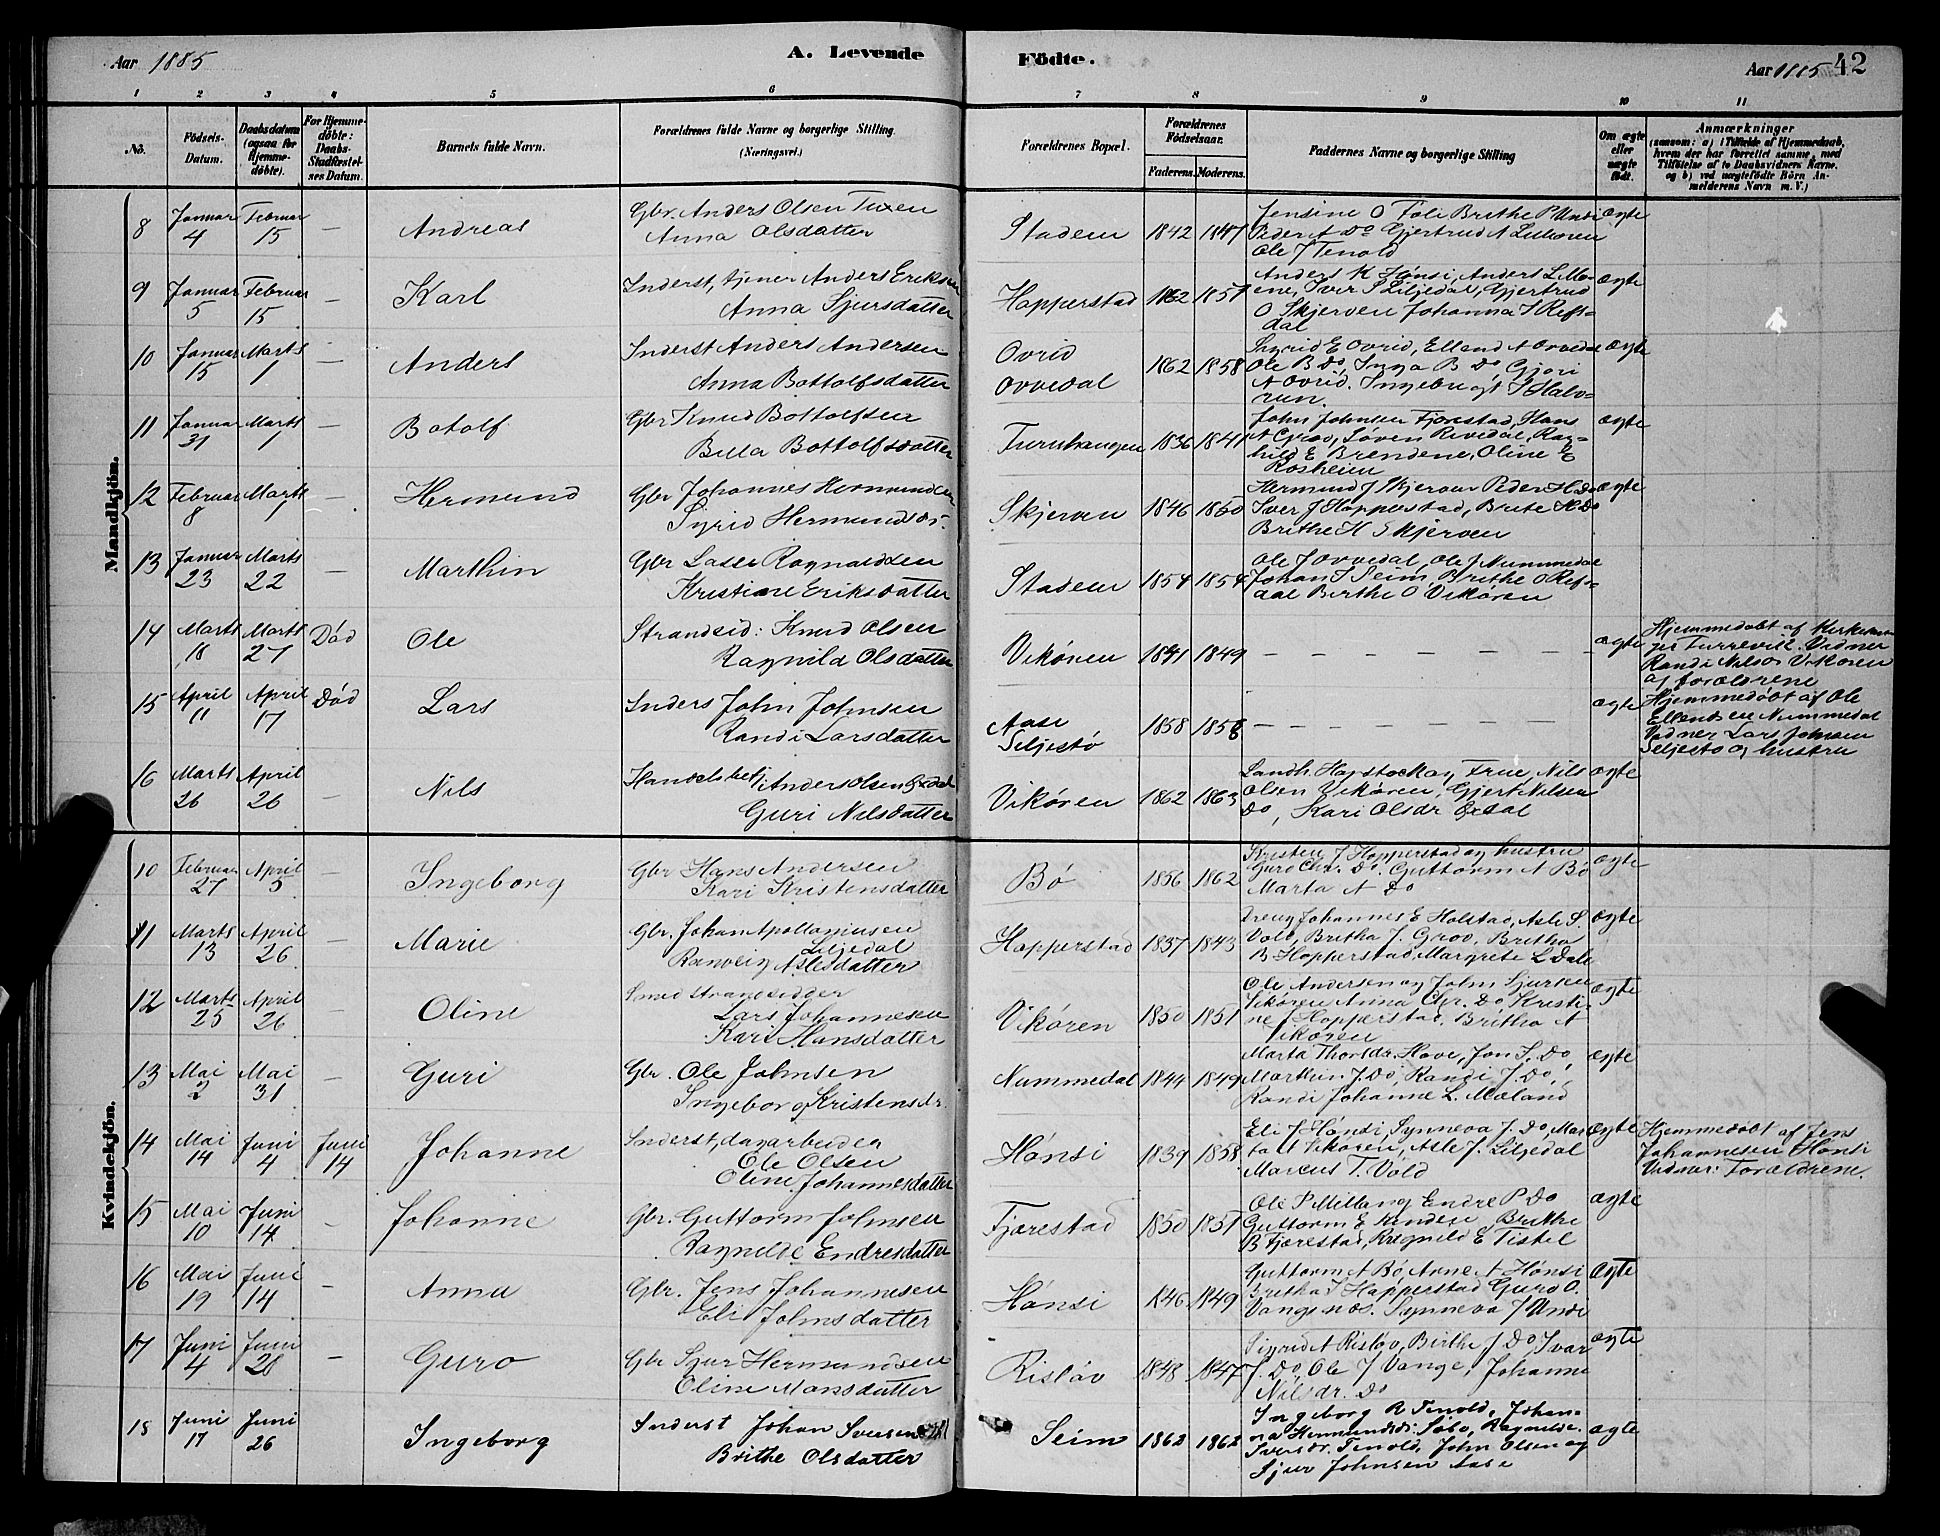 Aar 1885
A. Levende Födte.
Aar 1885 42
1 2 3 4 5 6 7 8 9 10 11
No.
Födsels-Datum.
Daabsdatum (ogsaa for Hjemmedöbte).
For Hjemmedöbte: Daabs-Stadfæstelses Datum.
Barnets fulde Navn.
Forældrenes fulde Navne og borgerlige Stilling.
(Næringsvei.)
Forældrenes Bopæl.
Forældrenes Födselsaar.
Faderens. Moderens.
Faddernes Navne og borgerlige Stilling
Om ægte eller uægte födt.
Anmærkninger
(saasom: a) i Tilfælde af Hjemmedaab, hvem der har forrettet samme, med Tilföielse af to Daabsvidners Navne, og b) ved uægtefödte Börn Anmelderens Navn m. V.)
Mandkjön.
8 Januar 4 Februar 15 — Andreas
Gbr. Anders Olsen Tuxen
Anna Olsdatter
Stadeen 1842 1847
Jensine O Tole Brithe P Undi
Peder A Do Gjertrud A Vikøren
Ole J Tenold
ægte
9 Januar 5 Februar 15 — Karl
Inderst, tjener Anders Eriksen
Anna Sjursdatter
Hopperstad 1862 1857
Anders K Hønsi, Anders L Mo-
ene, Iver P Liljedal, Gjertrud
O Skjerven Johanna I Refs-
dal
ægte
10 Januar 15 Marts 1 — Anders
Inderst Anders Andersen
Anna Bottolfsdatter
Ovrid
Ovvedal 1862 1858
Sigrid E Ovrid, Ellend A Ovvedal
Ole B Do, Inga B Do Gjøri
A Ovrid. Ingeburgt I Halv-
run.
ægte
11 Januar 31 Marts 1 — Botolf
Gbr Knud Bottolfsen
Bella Bottolfsdatter
Turnhaugen 1836 1841
John Johnsen Fjørestad, Hans
A Grov, Søren Rivedal, Rag-
hild E Brendene, Oline E
Rosheim
ægte
12 Februar 8 Marts 1 — Hermund
Gbr Johannes Hermundsen
Sigrid Hermundsdr.
Skjerven 1846 1850
Hermund J Skjerven Peder H Do
Iver J Hopperstad, Brite H Do
Brithe H Skjerven
ægte
13 Januar 23 Marts 22 — Marthin
Gbr Lasse Ragnaldsen
Kristiane Eriksdatter
Stadeen 1854 1854
Ole J Ovvedal, Ole J Nummedal
Johan I Seim, Brithe O Refs-
dal Birthe O Vikøren
14 Marts 18 Marts 27 Død Ole
Strandsid: Knud Olsen
Ragnild Olsdatter
Vikøren 1841 1849
— — — — — — —
ægte
Hjemmedøbt af Kirkesan-
ger Turrevill. Vidner
Randi Nilsdr Vikøren
og forældrene
15 April 11 April 17 Død Lars
Inders John Johnsen
Randi Larsdatter
Aase
Seljestø 1858 1858
— — — — — — —
ægte
Hjemmedøbt af Ole
Ellendsen Nummedal
Vidner Lars Johnsen
Seljestø og hustru
16 Marts 26 April 26 — Nils
Handelsbetj. Anders Olsen Exdal
Guri Nilsdatter
Vikøren 1862 1863
Landh. Hopstock og Frue, Nils
Olsen Vikøren, Gjert Nilsen
Do, Kari Olsdr Exdal
ægte
Kvindekjön.
10 Februar 27 April 5 — Ingeborg
Gbr Hans Andersen
Kari Kristensdatter
Bø 1856 1862
Kristen J Hopperstad og hustru
Guro Chr. Do. Guttorm A Bø
Marta A Do
ægte
11 Marts 13 April 26 — Marie
Gbr. Johan Apolloniusen
Liljedal
Ranveig Aslesdatter
Hopperstad 1837 1843
Johannes E Holstad, Asle S.
Vold, Britha J. Grov, Britha
B Hopperstad, Margrete L Dale
ægte
12 Marts 25 April 26 — Oline
Smed Strandsidder
Lars Johannesen
Kari Hansdatter
Vikøren 1850 1851
Ole Andersen og John Sjursen
Vikøren Anna Chr. Do Kristi-
ne J Hopperstad, Britha A
Vikøren
ægte
13 Mai 2 Mai 31 — Guri
Gbr. Ole Johnsen
Ingeborg Kristensdr.
Nummedal 1844 1849
Marta Thorsdr. Hove, Jon S. Do,
Marthin J. Do, Randi J. Do,
Randi Johanne L. Mæland
ægte
14 Mai 14 Juni 4 Juni 14 Johanne
Inderst, dagarbeider
Ole Olsen
Oline Johannesdatter
Hønsi 1839 1858
Eli J Hønsi, Synneva J. Do Mar-
ta Vikøren, Asle J. Liljedal
Marcus T. Vold
ægte
Hjemmedøbt af Jens
Johannesen Hønsi
Vidner: Forældrene.
15 Mai 10 Juni 14 — Johanne
Gbr. Guttorm Johnsen
Ragnilde Endresdatter
Fjørestad 1850 1851
Ole P Midlang Endre P Do
Guttorm E Rendese, Brithe
B Fjørestad, Ragnild E Tistel
ægte
16 Mai 19 Juni 14 — Anna
Gbr. Jens Johannesen
Eli Johnsdatter
Hønsi 1846 1849
Guttorm A Bø, Arne A Hønsi
Britha I Hopperstad Guro O.
Vangsnes. Synneva J Undi
ægte
17 Juni 4 Juni 28 — Guro
Gbr Sjur Hermundsen
Oline Monsdatter
Risløv 1848 1847
Sigrid A Risløv, Birthe J. Do Ivar
J. Do, Ole J Vange, Johanne
Nilsdr. Do
ægte
18 Juni 17 Juni 26 Ingeborg
Inderst Johan Iversen
Brithe Olsdatter
Seim 1862 1862
Ingeborg R Tenold, Johan-
na Hermundsdr. Sæbø, Ragnilde
Iversdr. Tenold, John Olsen og
Sjur Johnsen Aase
ægte